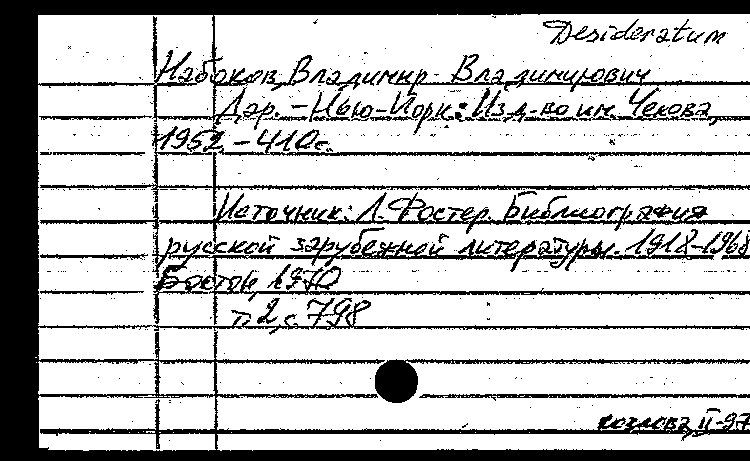 Desideratum
Набоков, Владимир Владимирович
Дар. - Нью-Йорк: Изд-во им. Чехова,
1952. - 410с.
Источник: Л. Фостер. Библиография
русской зарубежной литературы. 1918-1968
Бостон, 1970
т. 2, с. 798
козлова, II-97